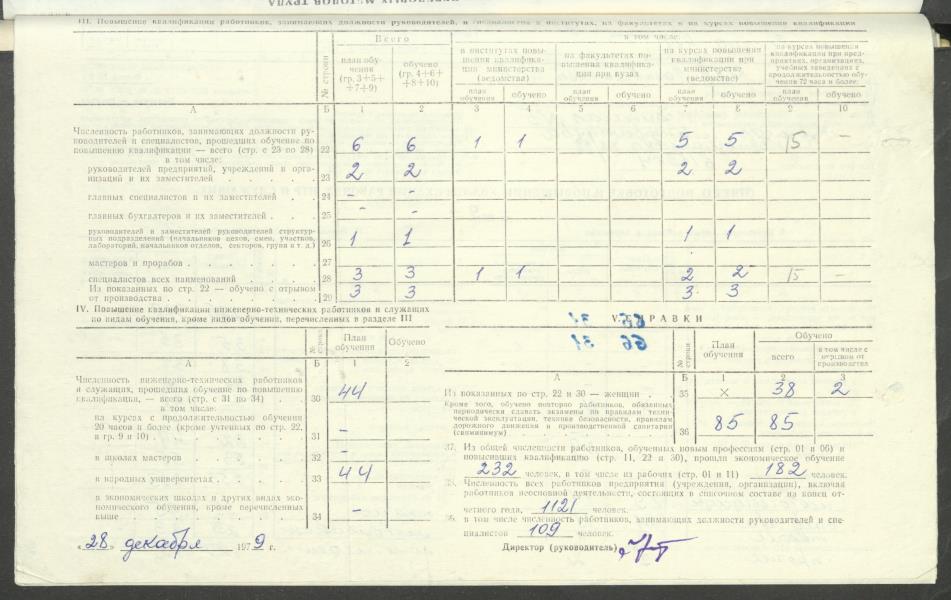 III. Повышение квалификации работников, занимающих должности руководителей, и специалистов в институтах, на факультетах и на курсах повышения квалификации
№ строки
Всего
в том числе:
план обучения (гр. 3+5+7+9)
обучено (гр. 4+6+8+10)
в институтах повышения квалификации министерства (ведомства)
на факультетах повышения квалификации при вузах
на курсах повышения квалификации при министерстве (ведомстве)
на курсах повышения квалификации при предприятиях, организациях, учебных заведениях с продолжительностью обучения 72 часа и более:
план обучения обучено план обучения обучено план обучения обучено план обучения обучено
А Б 1 2 3 4 5 6 7 8 9 10
Численность работников, занимающих должности руководителей и специалистов, прошедших обучение по повышению квалификации — всего (стр. с 23 по 28) 22 6 6 1 1 5 5 15 –
в том числе:
руководителей предприятий, учреждений и организаций и их заместителей 23 2 2 2 2
главных специалистов и их заместителей 24 - -
главных бухгалтеров и их заместителей 25 - -
руководителей и заместителей руководителей структурных подразделений (начальников цехов, смен, участков, лабораторий, начальников отделов, секторов, групп и т. д.) 26 1 1 1 1
мастеров и прорабов 27
специалистов всех наименований 28 3 3 1 1 2 2 15 –
Из показанных по стр. 22 — обучено с отрывом от производства 29 3 3 3 3
IV. Повышение квалификации инженерно-технических работников и служащих
по видам обучения, кроме видов обучения, перечисленных в разделе III
№ строки План обучения Обучено
А Б 1 2
Численность инженерно-технических работников
и служащих, прошедших обучение по повышению
квалификации, — всего (стр. с 31 по 34) 30 44
в том числе:
на курсах с продолжительностью обучения
20 часов и более (кроме учтенных по стр. 22,
в гр. 9 и 10) 31 –
в школах мастеров 32 –
в народных университетах 33 44
в экономических школах и других видах экономического обучения, кроме перечисленных
выше 34 –
«28» декабря 1979 г.
V. СПРАВКИ
№ строки План обучения Обучено
всего в том числе с отрывом от производства
А Б 1 2 3
Из показанных по стр. 22 и 30 — женщин 35 × 38 2
Кроме того, обучено повторно работников, обязанных
периодически сдавать экзамены по правилам технической эксплуатации, технике безопасности, правилам
дорожного движения и производственной санитарии
(санминимум) 36 85 85
37. Из общей численности работников, обученных новым профессиям (стр. 01 и 06) и
повысивших квалификацию (стр. 11, 22 и 30), прошли экономическое обучение
232 человек, в том числе из рабочих (стр. 01 и 11) 182 человек.
Численность всех работников предприятия (учреждения, организации), включая
работников неосновной деятельности, состоящих в списочном составе на конец отчетного года, 1121 человек.
в том числе численность работников, занимающих должности руководителей и специалистов 109 человек.
Директор (руководитель)